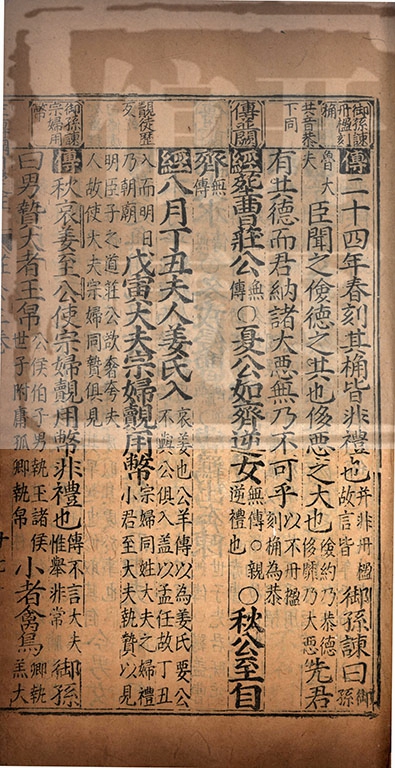 御孫諫
丹楹刻
桷
傳二十四年春刻其桷皆非禮也並非丹楹故言皆御孫諫曰御孫
共音恭
下同
魯大夫臣聞之儉德之共也侈惡之大也儉約乃恭德侈靡乃大惡先君
有共德而君納諸大惡無乃不可乎以不丹楹刻桷為恭
傳並闕
經葬曹莊公無傳○夏公如齊逆女無傳○親逆禮也○秋公至自
齊無傳
經八月丁丑夫人姜氏入哀姜也公羊傳以為姜氏要公不與公俱入蓋以孟任故丁丑
覿徒歷
反
入而明日乃朝廟戊寅大夫宗婦覿用幣宗婦同姓大夫之婦禮小君至大夫執贄以見
明臣子之道莊公欲奢夸夫人故使大夫宗婦同贄俱見
御孫諫
宗婦用
幣
傳秋哀姜至公使宗婦覿用幣非禮也傳不言大夫惟舉非常御孫
曰男贄大者玉帛公侯伯子男執玉諸侯世子附庸孤卿執帛小者禽鳥卿執羔大